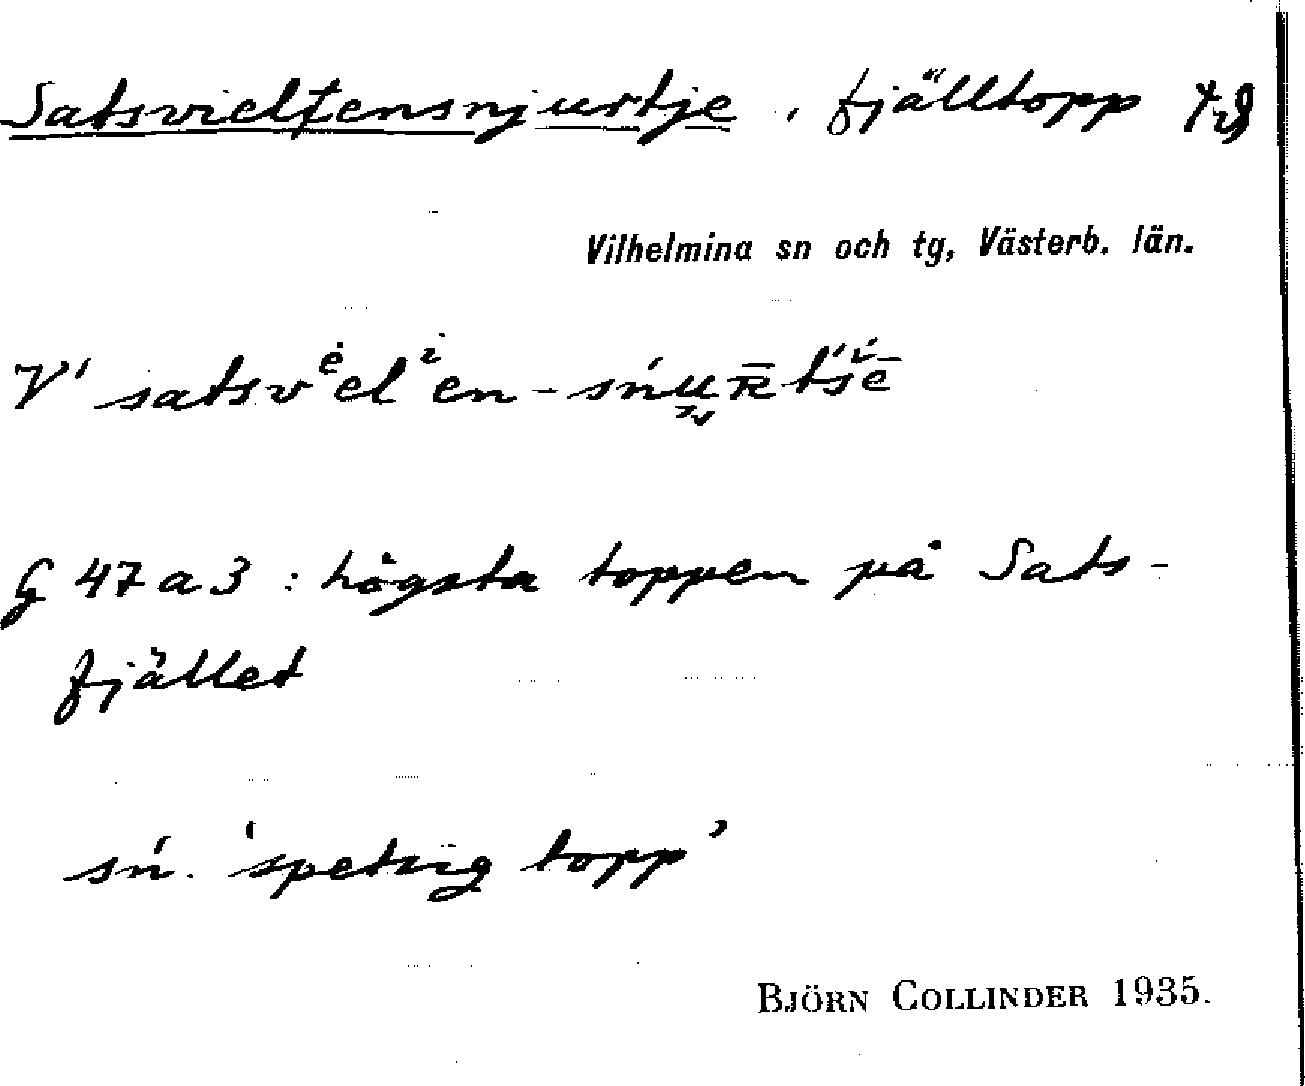 Satsvieltensnjurtje, fjälltopp
Vilhelmina sn och tg, Västerb. län.
G 47 a 3 : högsta toppen på Sats-
fjället
sń. 'spetsig topp'
BJÖRN COLLINDER 1935.